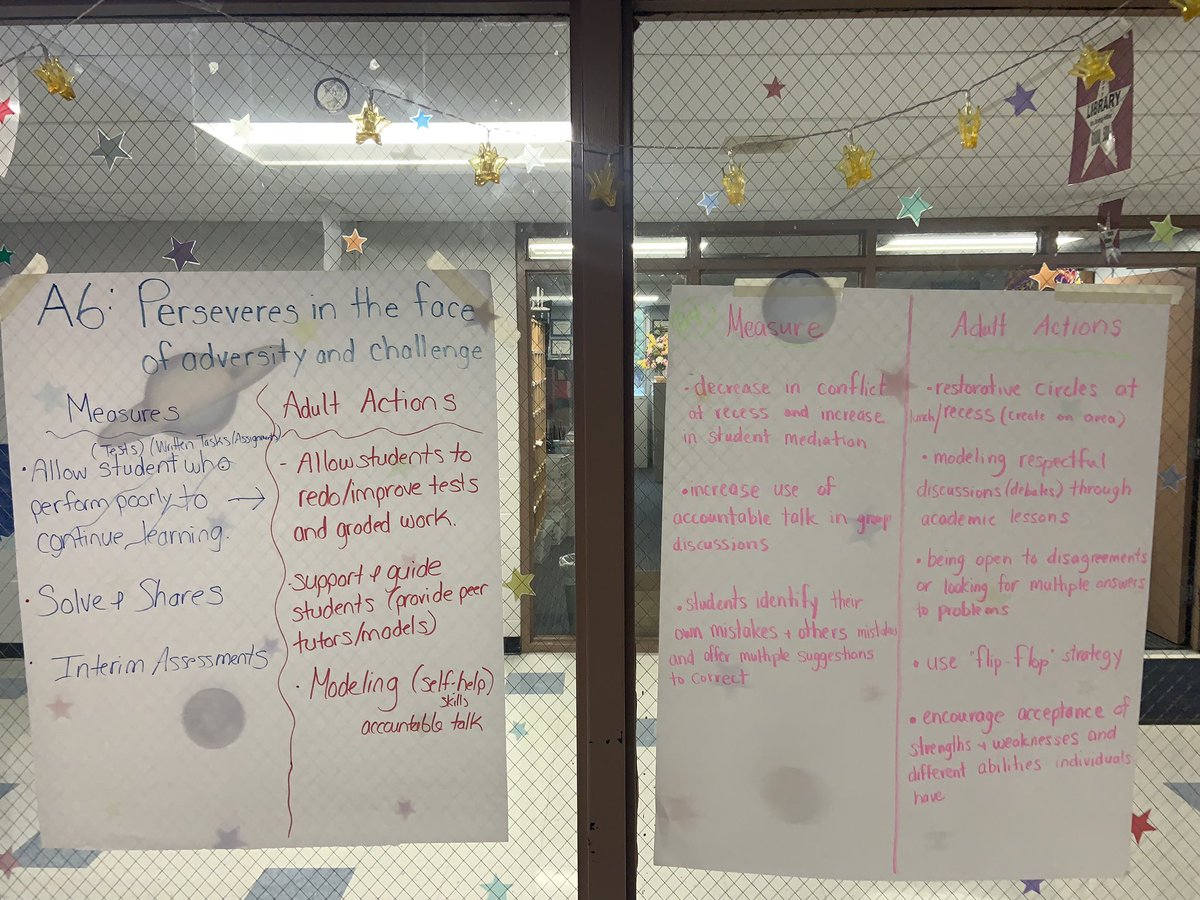 A6: Perseveres in the face
of adversity and challenge
Measures
(Tests) (Written Tasks/Assignments)
• Allow student who
perform poorly to →
continue learning.
• Solve + Shares
• Interim Assessments
Adult Actions
- Allow students to
redo/improve tests
and graded work.
• Support + guide
students (provide peer
tutors/models)
• Modeling (self-help)
skills
accountable talk
Measure
• decrease in conflict
at recess and increase
in student mediation
• increase use of
accountable talk in group
discussions
• students identify their
own mistakes + others mistakes
and offer multiple suggestions
to correct
Adult Actions
• restorative circles at
lunch/recess (create an area)
• modeling respectful
discussions (debates) through
academic lessons
• being open to disagreements
or looking for multiple answers
to problems
• use "flip-flop" strategy
• encourage acceptance of
strengths + weaknesses and
different abilities individuals
have
LIBRARY